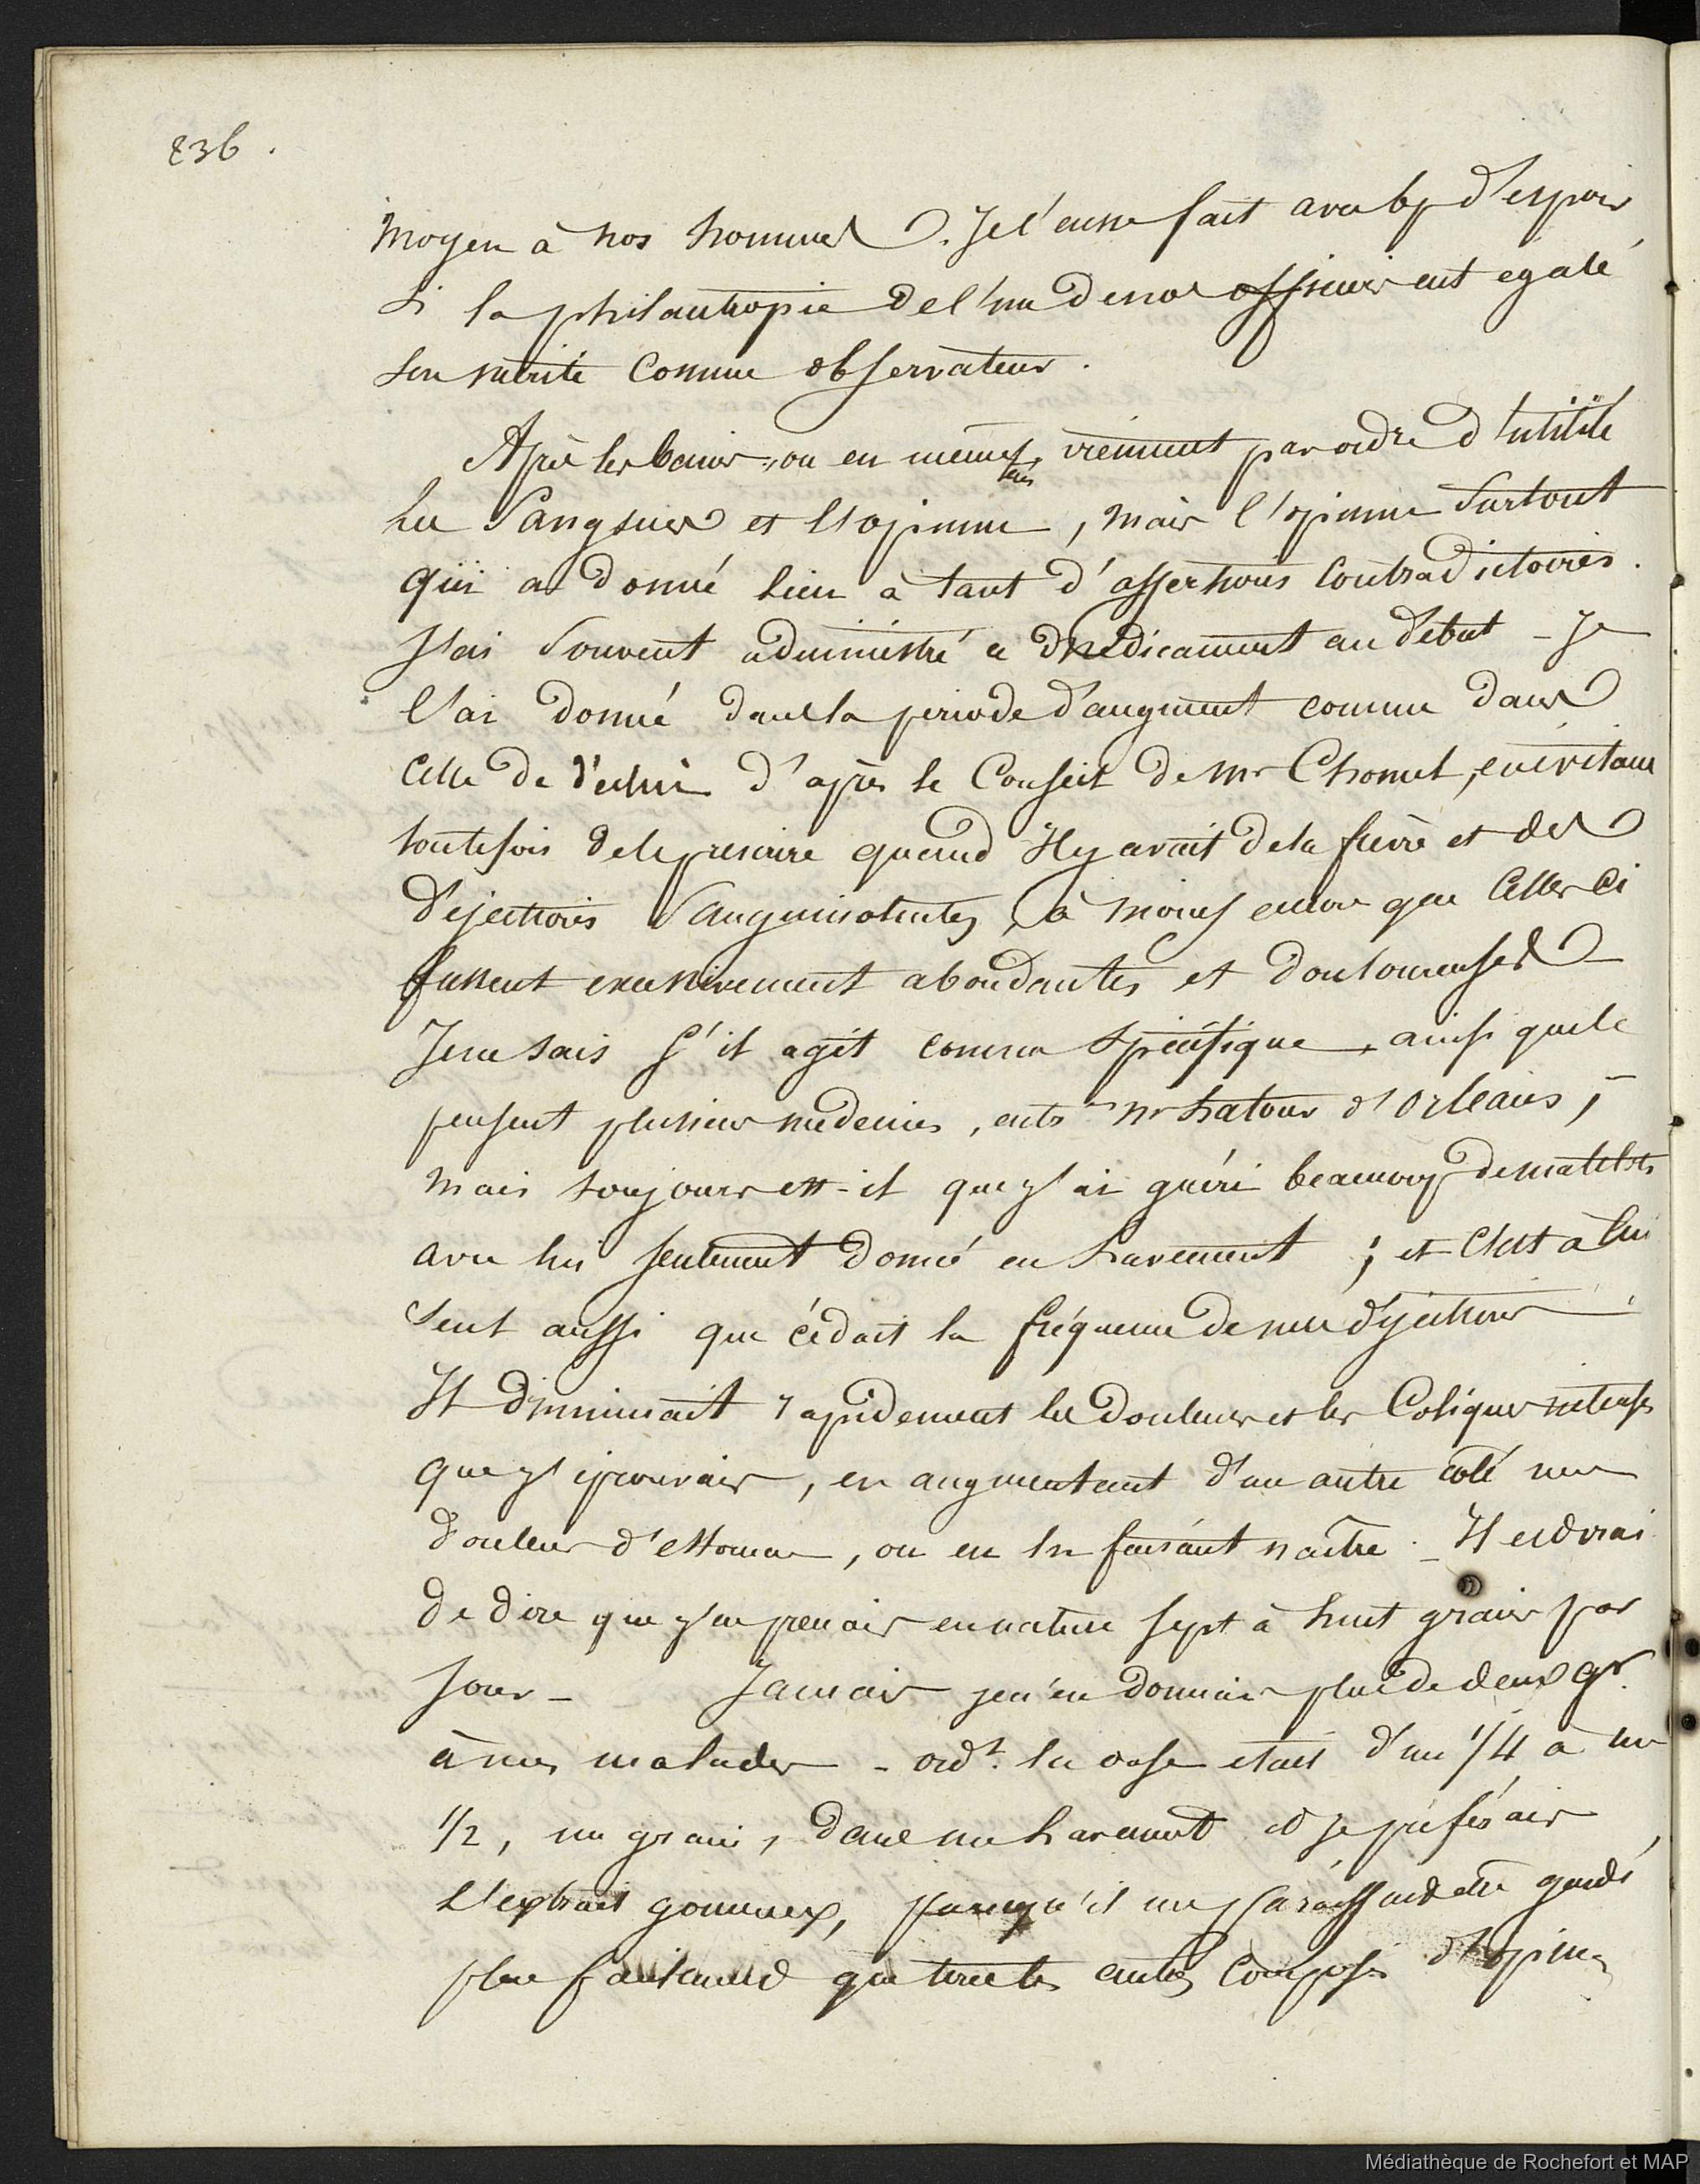 236.
moyen à nos hommes. Je l'eusse fait avec bp d'espoir
si la philantropie de l'un de nos officiers eut egalé
son mérite comme observateur.
Après les bains, ou en même tems, viennent par ordre d'utilité
les sangsues et l'opium, mais l'opium surtout
qui a donné lieu à tant d'assertions contradictoires.
J'ai souvent administré ce médicament au début - Je
l'ai donné dans la periode d'augment comme dans
celle de déclin d'après le Conseil de Mr Chomel, en évitant
toutefois de le prescrire quand Il y avait de la fievre et des
déjections sanguinolentes, à moins encore que Celles ci
fussent excessivement abondantes et douloureuses
Je ne sais s'il agit comme spécifique, ainsi que le
pensent plusieurs medecins, entr Mr Latour d'Orleans,
mais toujours est-il que j'ai guéri beaucoup de matelots
avec lui seulement donné en Lavement; et C'est à lui
seul aussi que cédait la fréquence de mes déjections
Il diminuait rapidement les douleurs et les Coliques intenses
que j'éprouvais, en augmentant d'un autre côté une
douleur d'estomac, ou en la faisant naître. Il est vrai
de dire que j'en prenais en nature sept à huit grains par
jour - Jamais je n'en donnais plus de deux gr.
à mes malades - ordt. la dose etait d'un 1/4 à un
1/2, un grain, dans un Lavement et je préférais
L'extrait gommeux, parcequ'il me paraissait être
plus que toutes autres Composés d'opium
Médiathèque de Rochefort et MAP